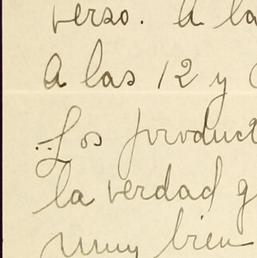 verso. A la
A las 12 y
Los product
la verdad q
muy bien